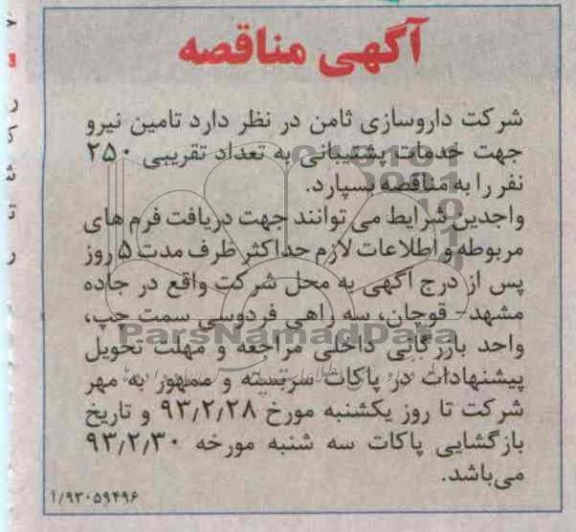 آگهی مناقصه
شرکت داروسازی ثامن در نظر دارد تامین نیرو
جهت خدمات پشتیبانی به تعداد تقریبی ۲۵۰
نفر را به مناقصه بسپارد.
واجدین شرایط می توانند جهت دریافت فرم های
مربوطه و اطلاعات لازم حداکثر ظرف مدت ۵ روز
پس از درج آگهی به محل شرکت واقع در جاده
مشهد- قوچان، سه راهی فردوسی سمت چپ،
ParsNamadData
واحد بازرگانی داخلی مراجعه و مهلت تحویل
پیشنهادات در پاکات سربسته و ممهور به مهر
شرکت تا روز یکشنبه مورخ ۹۳/۲/۲۸ و تاریخ
بازگشایی پاکات سه شنبه مورخه ۹۳/۲/۳۰
می‌باشد.
۹۳۰۵۹۴۹۶/آ